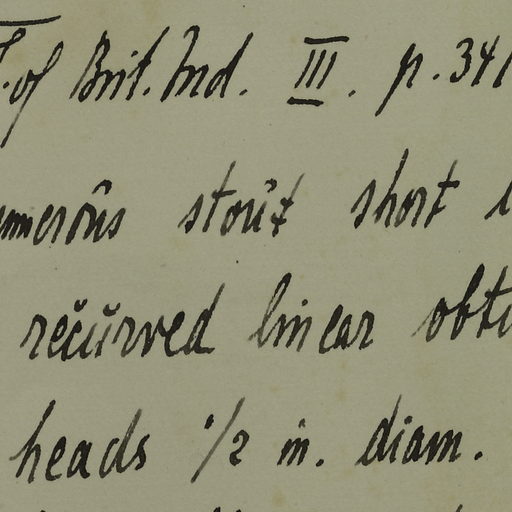 of Brit. Ind. III. p. 341
numerous stout short
recurved linear obtu
heads 1/2 in. diam.